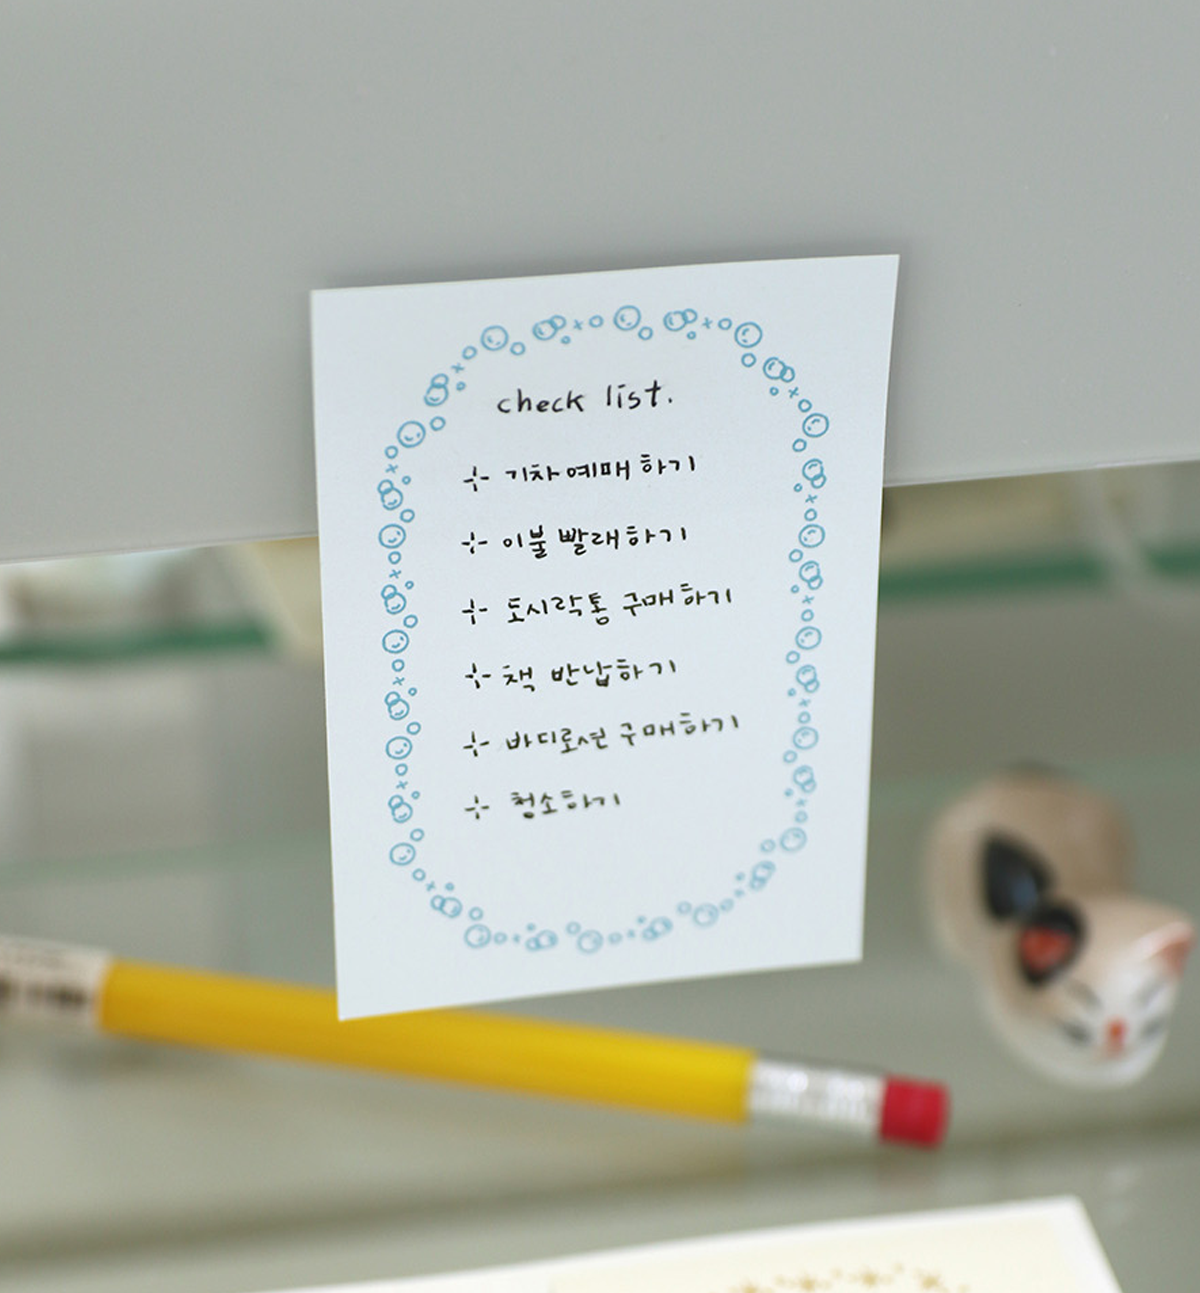 check list.
기차 예매 하기
이불 빨래하기
도시락통 구매하기
책 반납하기
바디로션 구매하기
청소하기